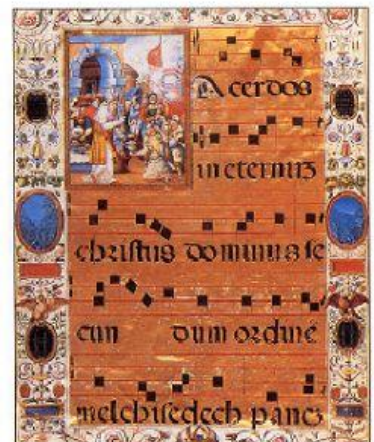 Acerdos
in eternuʒ
christus dominus se
cun dum ordinē
melchisedech paneʒ